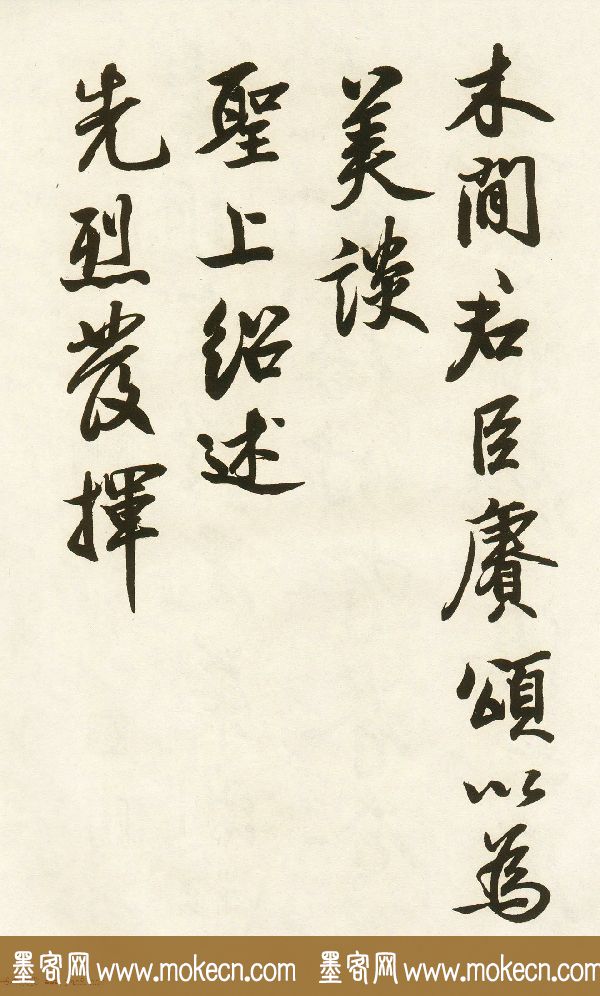 木間君臣賡頌以為
美談
聖上紹述
先烈發揮
墨客网 www.mokecn.com 墨客网 www.mokecn.com